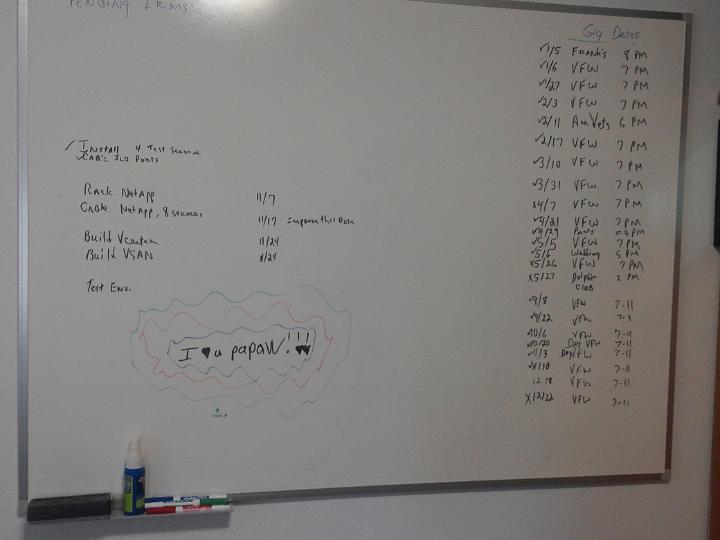 PENDING ITEMS:
Gig Dates
√1/5 FRANK'S 8 PM
√1/6 VFW 7 PM
√1/27 VFW 7 PM
√2/3 VFW 7 PM
√2/11 AmVets 6 PM
√2/17 VFW 7 PM
√3/10 VFW 7 PM
√3/31 VFW 7 PM
x4/7 VFW 7 PM
√4/21 VFW 7 PM
√4/29 Party PM
√5/5 VFW 7 PM
√5/6 Wedding 5 PM
x5/26 VFW 7 PM
x5/27 Dolphin PM
Club
√9/8 VFW 7-11
√9/22 VFW
10/6 VFW 7-11
10/20 DAV VFW 7-11
11/3 DAV VFW 7-11
VFW 7-11
12 VFW 7-11
X12/22 VFW 7-11
√ INSTALL 4 Test Servers
ILO Ports
Rack NetApp 11/7
Cable NetApp, 8 servers 11/17 Improve this Date
Build Vcenter 11/24
Build VSAN 11/24
Test Env.
I ♥ u papaw!!! ♥♥